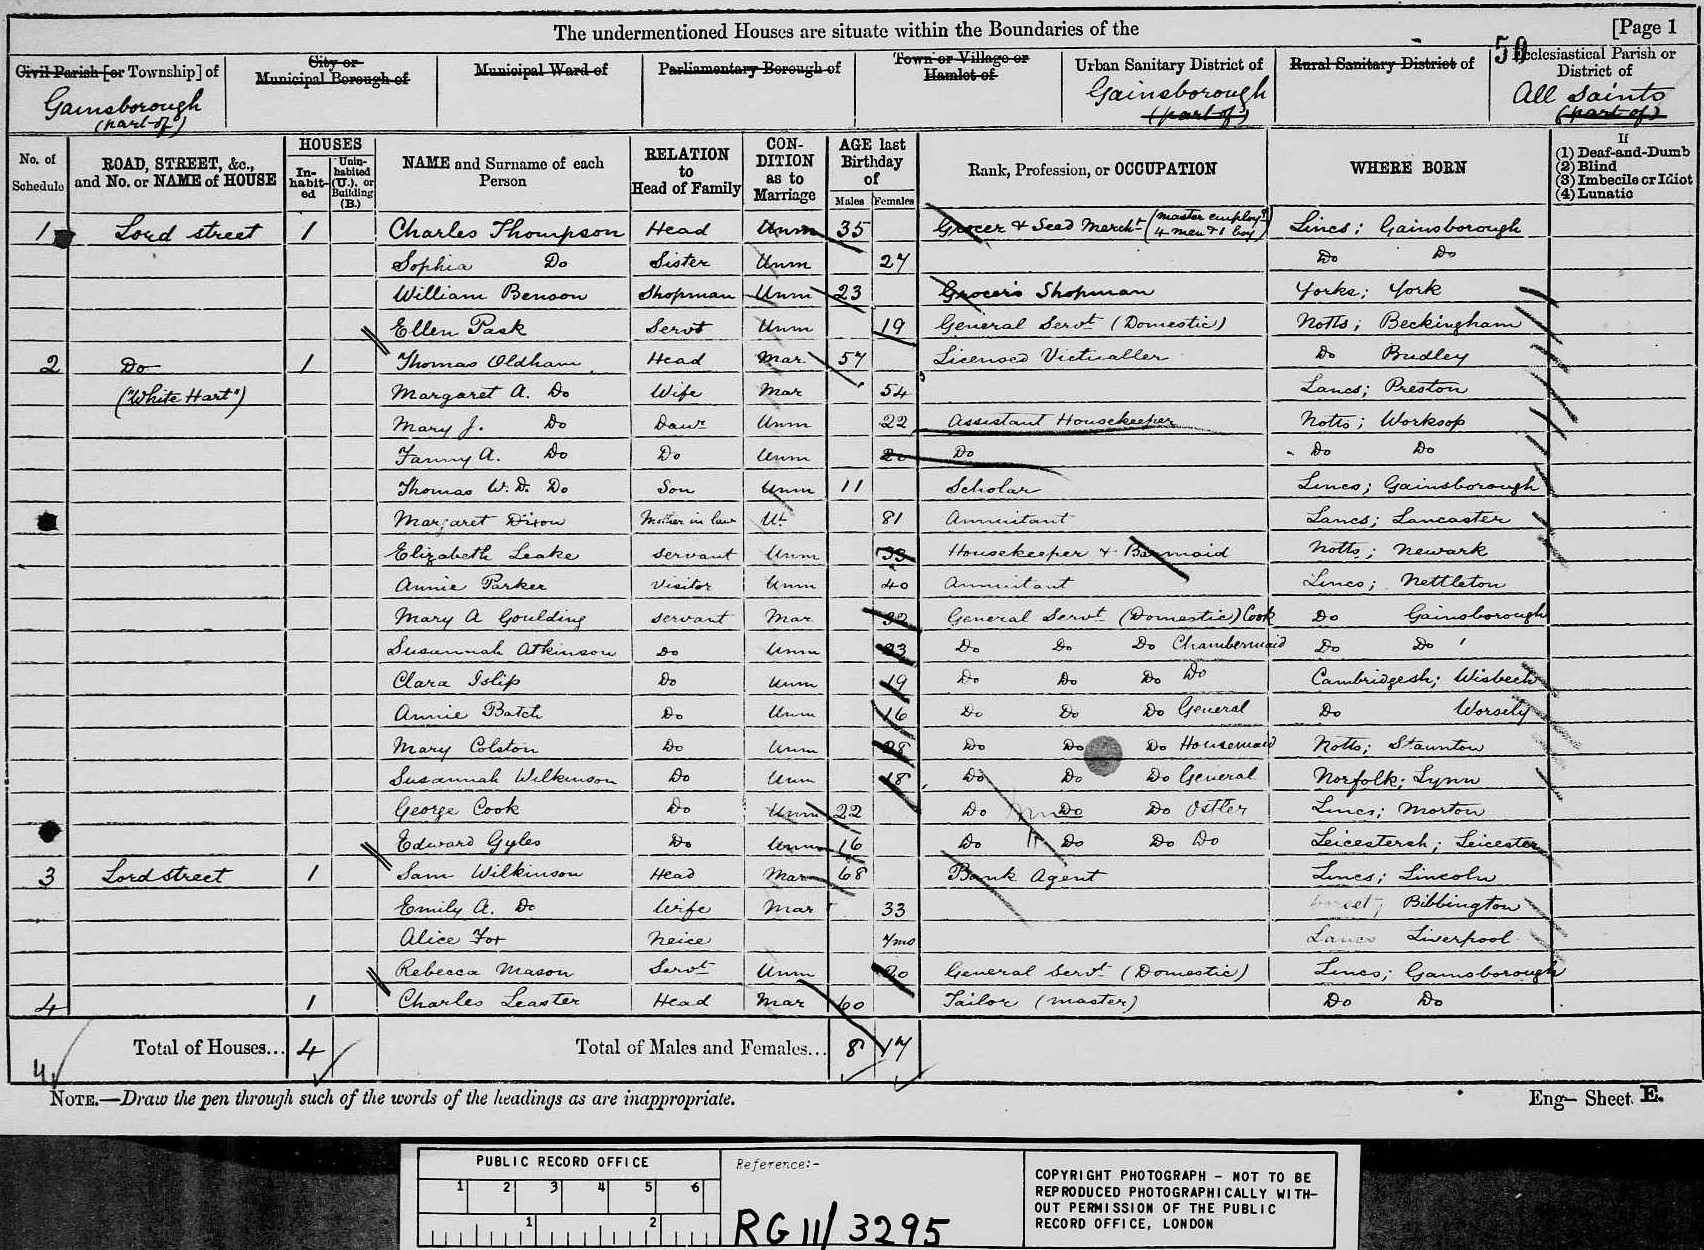 The undermentioned Houses are situate within the Boundaries of the [Page 1
50
Civil Parish [or Township] of
City or Municipal Borough of
Municipal Ward of
Parliamentary Borough of
Town or Village or Hamlet of
Urban Sanitary District of
Rural Sanitary District of
Ecclesiastical Parish or District of
Gainsborough (part of)
Gainsborough (part of)
All Saints (part of)
No. of Schedule
ROAD, STREET, &c., and No. or NAME of HOUSE
HOUSES
In-habit-ed
Unin-habited (U.), or Building (B.)
NAME and Surname of each Person
RELATION to Head of Family
CON-DITION as to Marriage
AGE last Birthday of
Males Females
Rank, Profession, or OCCUPATION
WHERE BORN
If
(1) Deaf-and-Dumb
(2) Blind
(3) Imbecile or Idiot
(4) Lunatic
1 Lord street 1 Charles Thompson Head Unm 35 Grocer & Seed Mercht (master employg 4 men & 1 boy) Lincs; Gainsborough
Sophia Do Sister Unm 27 Do Do
William Benson Shopman Unm 23 Grocer's Shopman Yorks; York
Ellen Pask Servt Unm 19 General Servt (Domestic) Notts; Beckingham
2 Do 1 Thomas Oldham Head Mar 57 Licensed Victualler Do Budley
("White Hart") Margaret A. Do Wife Mar 54 Lancs; Preston
Mary J. Do Daur Unm 22 Assistant Housekeeper Notts; Worksop
Fanny A. Do Do Unm 20 Do Do Do
Thomas W. D. Do Son Unm 11 Scholar Lincs; Gainsborough
Margaret Dixon Mother in law 81 Annuitant Lancs; Lancaster
Elizabeth Leake servant Unm 33 Housekeeper & Barmaid Notts; Newark
Annie Parker Visitor Unm 40 Annuitant Lincs; Nettleton
Mary A Goulding servant Mar 32 General Servt (Domestic) Cook Do Gainsborough
Susannah Atkinson Do Unm 23 Do Do Do Chambermaid Do Do
Clara Islip Do Unm 19 Do Do Do Do Cambridgesh; Wisbech
Annie Batch Do Unm 16 Do Do Do General Do Worsely
Mary Colston Do Unm 28 Do Do Do Housemaid Notts; Staunton
Susannah Wilkinson Do Unm 18 Do Do Do General Norfolk; Lynn
George Cook Do Unm 22 Do Do Do Ostler Lincs; Morton
Edward Gyles Do Unm 16 Do Do Do Do Leicestersh; Leicester
3 Lord street 1 Sam Wilkinson Head Mar 68 Bank Agent Lincs; Lincoln
Emily A. Do Wife Mar 33 Bibbington
Alice Fox Neice 7mo Lancs Liverpool
Rebecca Mason Servt Unm 20 General Servt (Domestic) Lincs; Gainsborough
4 1 Charles Leaster Head Mar 60 Tailor (master) Do Do
4 Total of Houses... 4 Total of Males and Females... 8 17
NOTE.—Draw the pen through such of the words of the headings as are inappropriate. Eng— Sheet E.
PUBLIC RECORD OFFICE
1 2 3 4 5 6
1 2
Reference:-
RG 11/3295
COPYRIGHT PHOTOGRAPH - NOT TO BE
REPRODUCED PHOTOGRAPHICALLY WITH-
OUT PERMISSION OF THE PUBLIC
RECORD OFFICE, LONDON